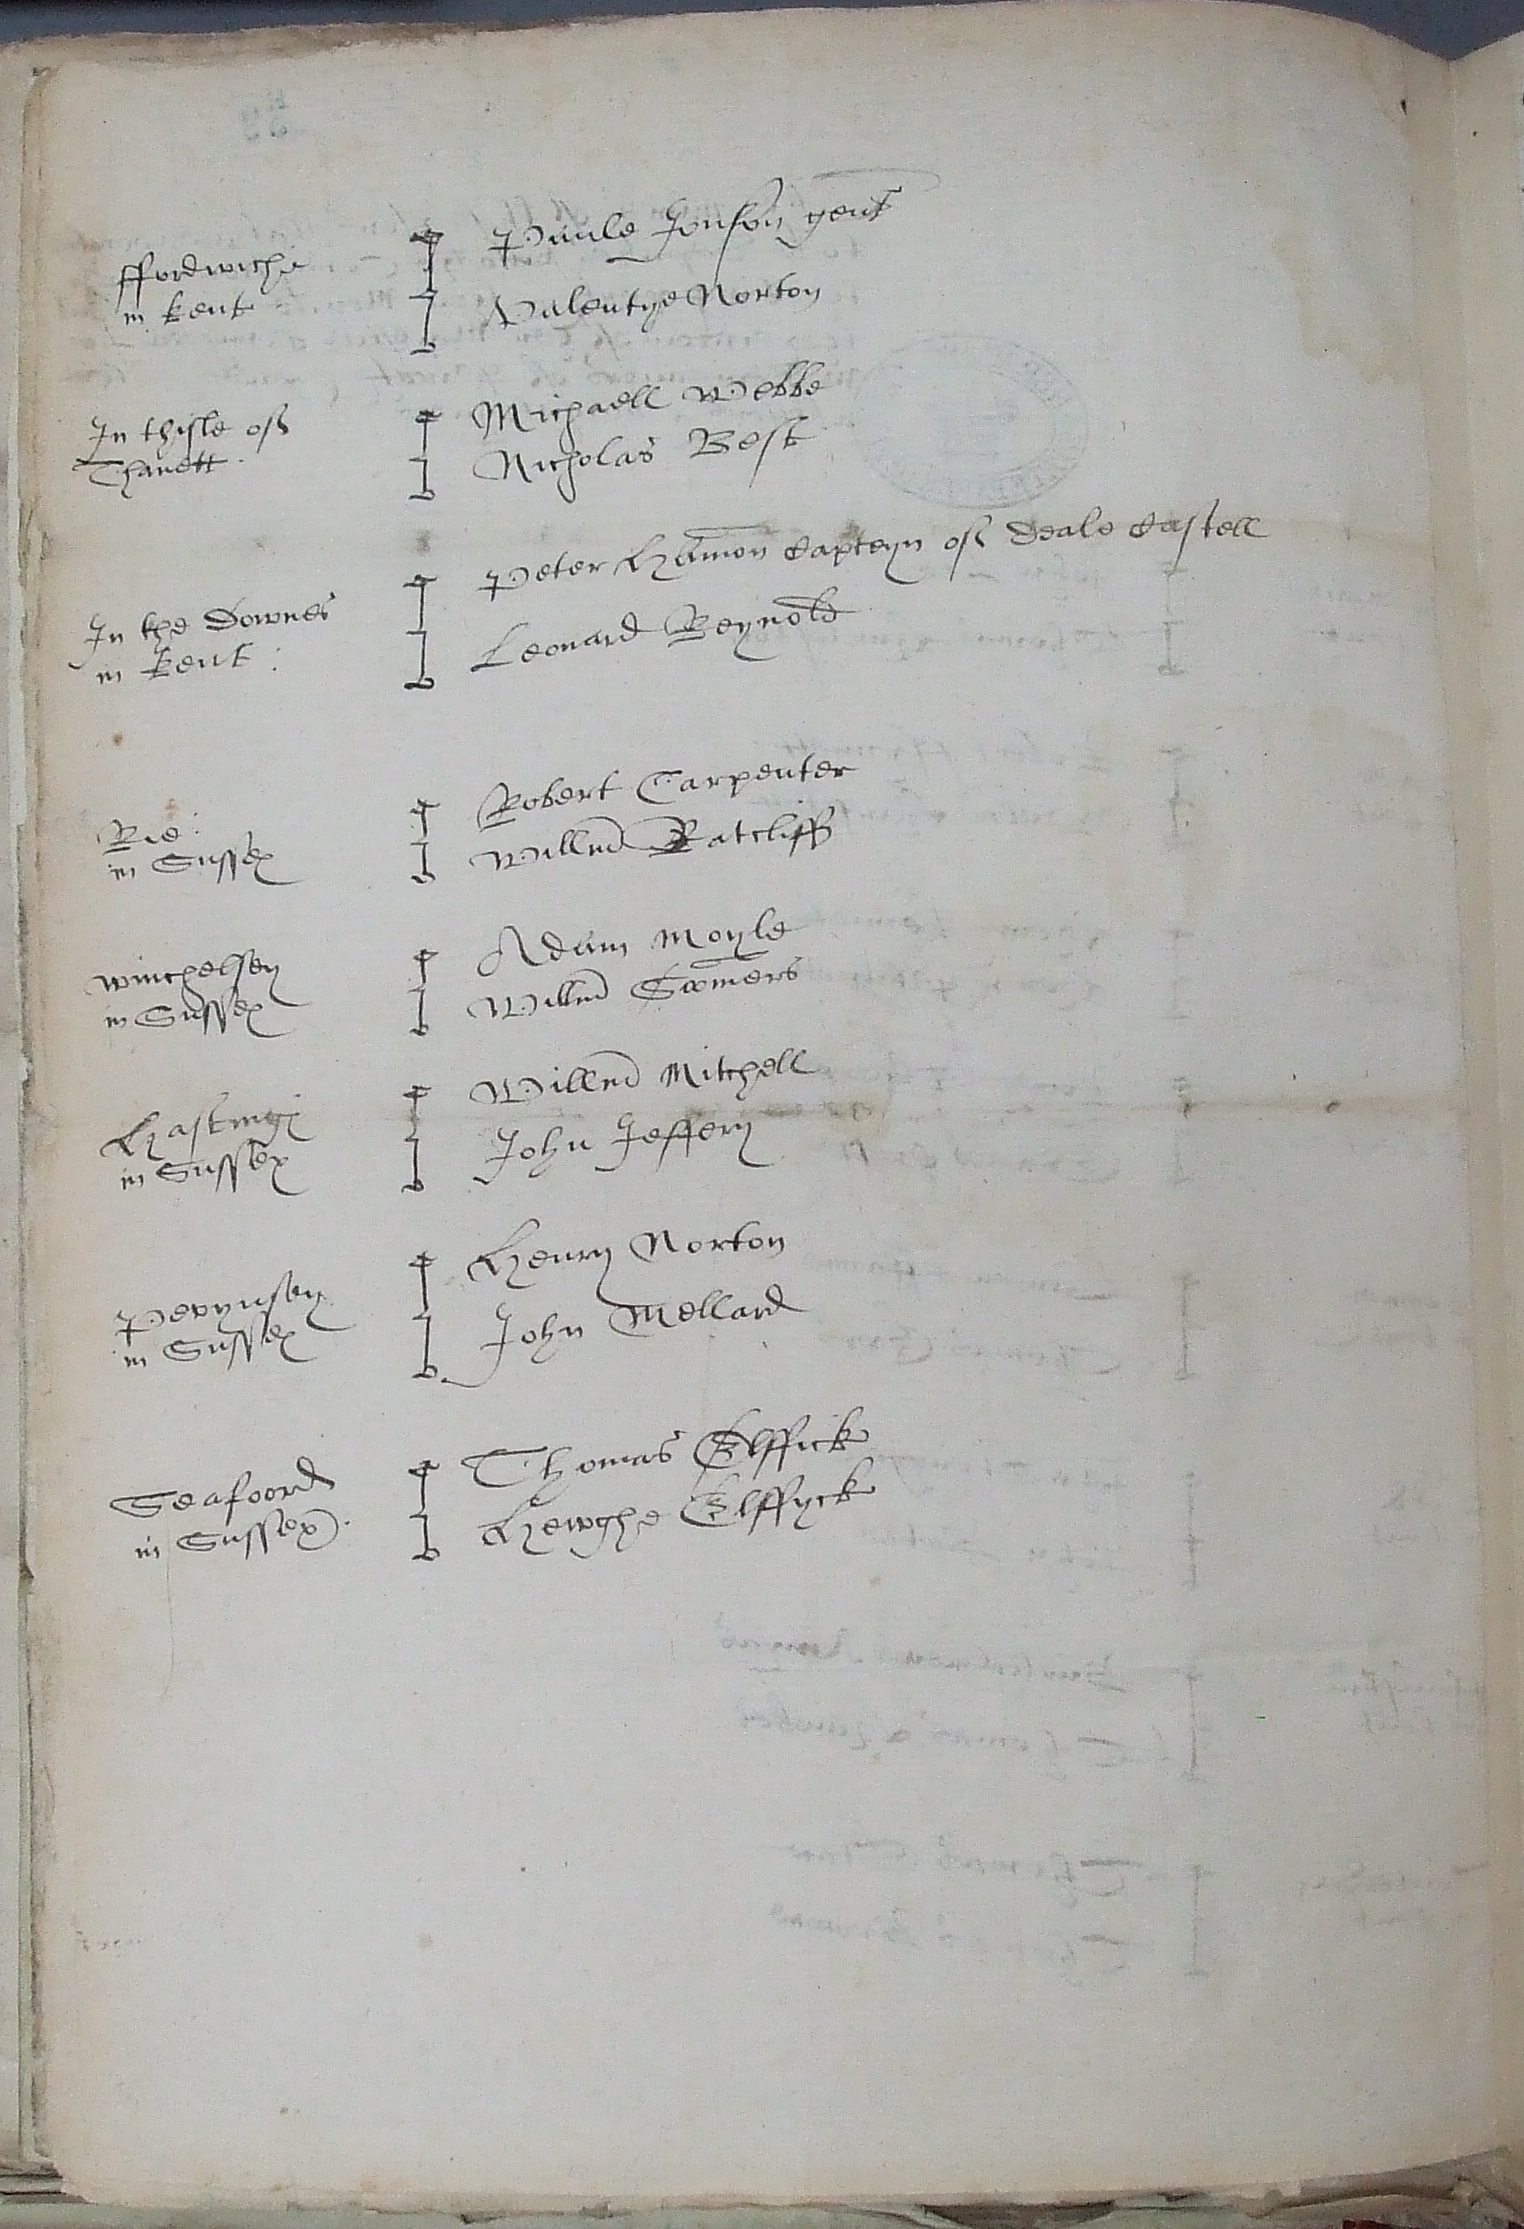 ffordwiche
in kent
Paule Jonson gent
Valentye Norton
In thisle off
Thanett
Michaell Webbe
Nicholas Best
In the Downes
in kent :
Peter Hamon Capteyn off Deale Castell
Leonard Reynold
Rie
in Sussex
Robert Carpenter
Willm Ratcliff
Winchelsey
in Sussex
Adam Moyle
Willm Somers
Hastinges
in Sussex
Willm Mitchell
John Jeffery
Pevynsey
in Sussex
Henry Norton
John Mellard
Seafoord
in Sussex
Thomas Elffick
Hewghe Elffyck